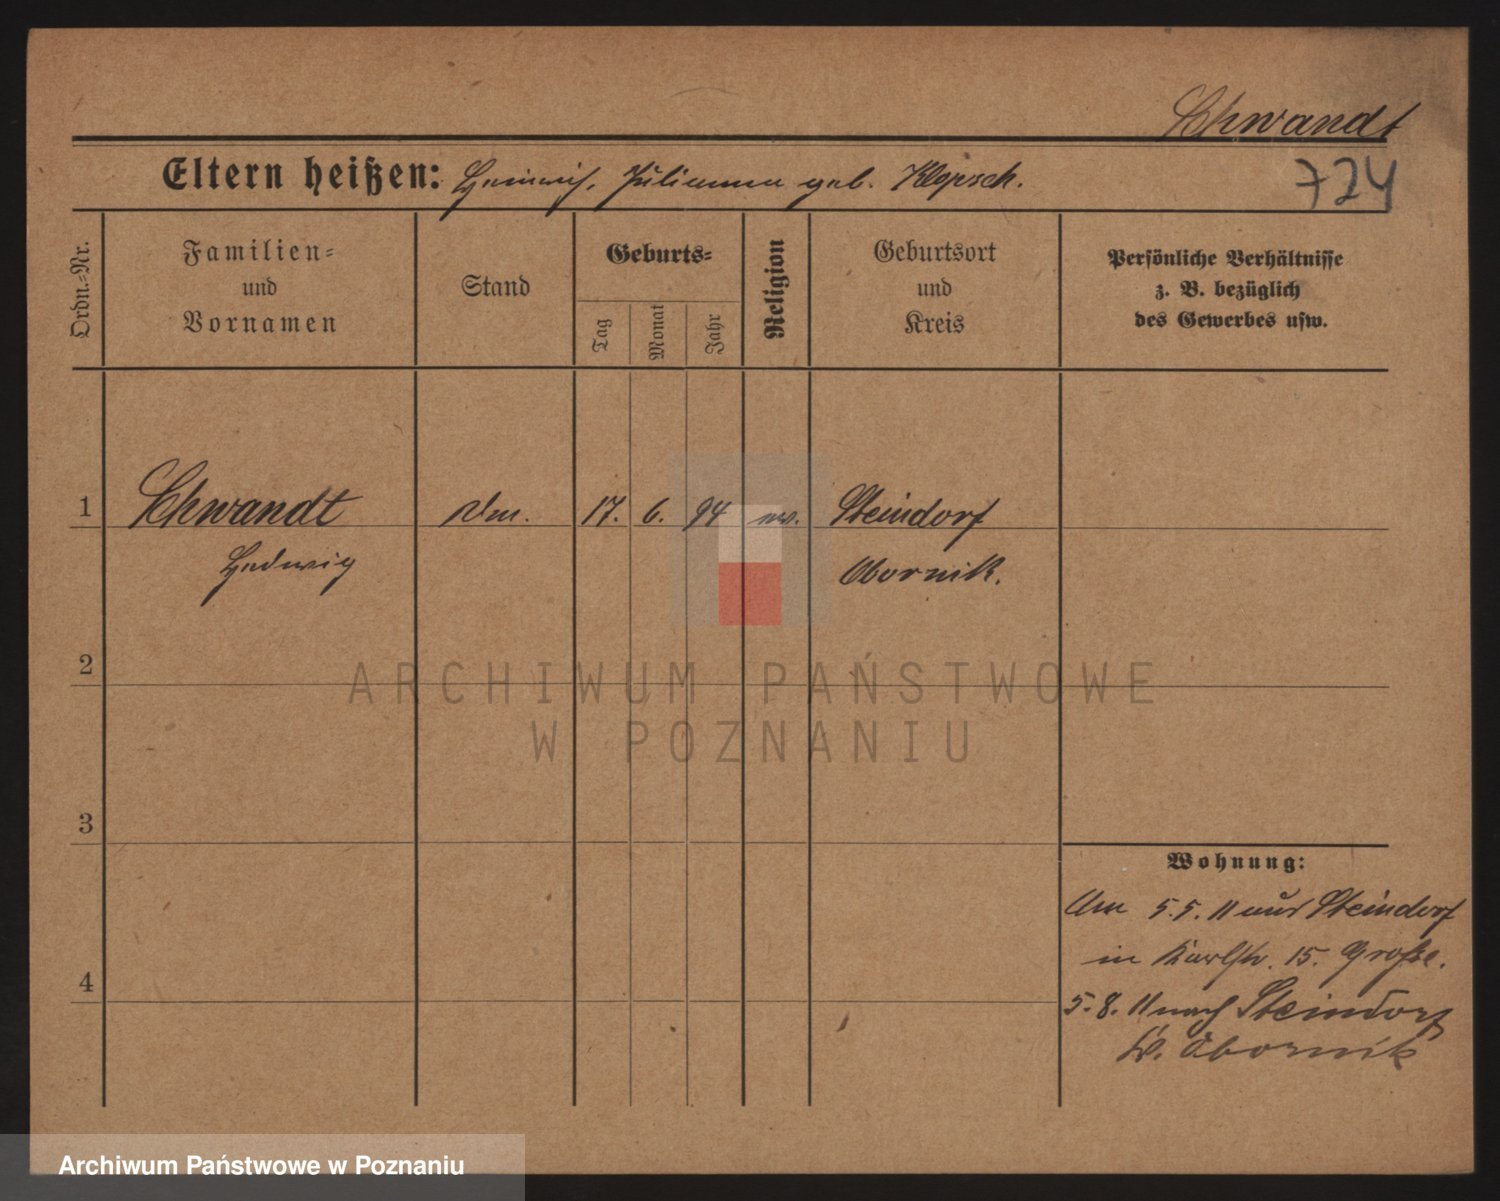 Schwandt
Eltern heißen: Heinrich, Julianna geb. Klopsch.
724
Ordn.-Nr.
Familien-
und
Vornamen
Stand
Geburts-
Tag
Monat
Jahr
Religion
Geburtsort
und
Kreis
Persönliche Verhältnisse
z. B. bezüglich
des Gewerbes usw.
1
Schwandt
17. 6. 94
Steindorf
Hedwig
Obornik.
2
ARCHIWUM PAŃSTWOWE
W POZNANIU
3
Wohnung:
Am 5.5.11 aus Steindorf
in Karlstr. 15. Große.
4
5.8.11 nach Steindorf
Kr. Obornik
Archiwum Państwowe w Poznaniu